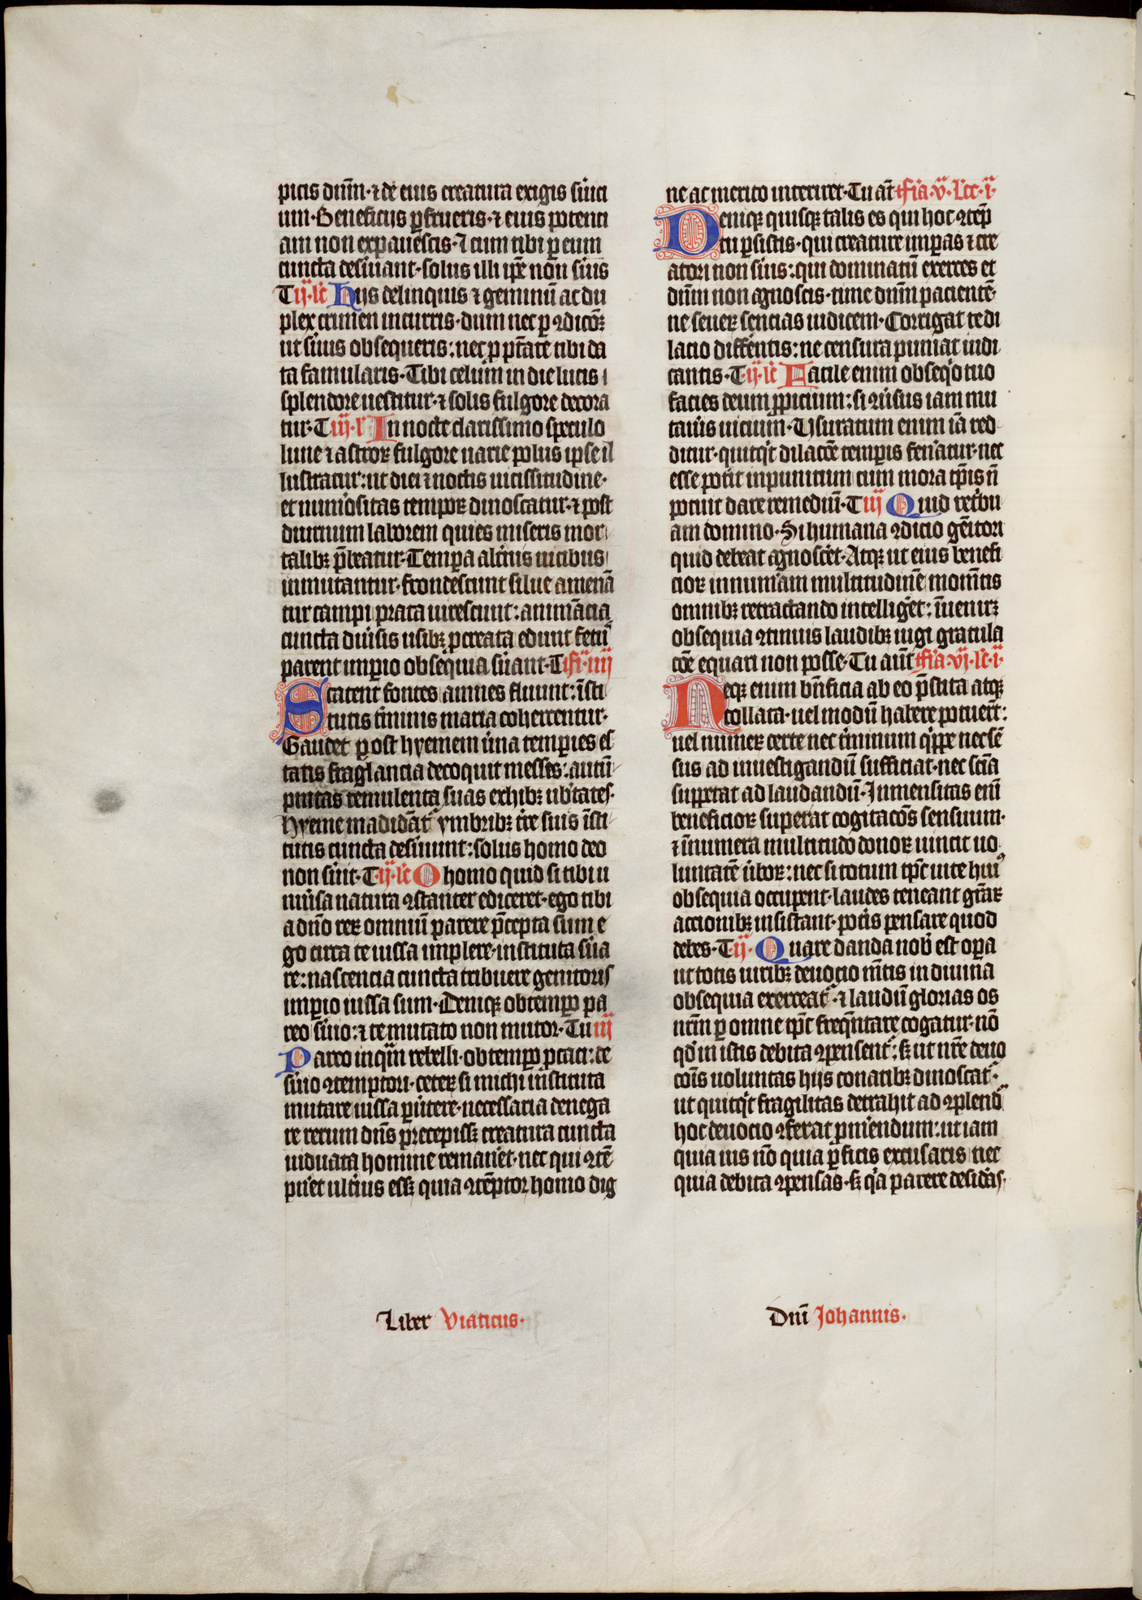 picis dnm̅·⁊ de eius creatura exigis s̓uici
um· Beneficiis ꝑfrueris·⁊ eius potenci
am non expauescis·⁊ cum tibi ꝑ eum
cuncta des̓uiant·solus illi ip̅e non s̓uis
Tij·lc̅ Hijs delinquis ⁊ geminū ac du
plex crimen incurris·dum nec ꝑ ꝯdic̅oꝫ
ut s̓uus obsequeris:nec ꝑ pt̅atē tibi da
ta famularis·Tibi celum in die lucis
splendore uestitur·⁊ solis fulgore decora
tur·Tiij·l' In nocte clarissimo speculo
lune ⁊ astroꝝ fulgore uarie polus ipse il
lustratur:ut diei ⁊ noctis uicissitudine·
et num̓ositas tempoꝝ dinoscatur·⁊ post
diurnum laborem quies miseris mor
talibꝫ p̅beatur·Temp̅a alt̓nis uicibus
inmutantur·frondescunt silue amena̅
tur campi prata uirescunt:anima̅cia
cuncta diu̓sis usibꝫ ꝓcreata edunt fetū
parent imꝑio obsequia s̓uant·T fi·iiij
Scatent fontes amnes fluunt:īsti
tutis t̓minis maria cohercentur·
Gaudet post hyemem u̓na temperies es
tatis fraglancia decoquit messes:autū
pnitas temulenta suas exhibꝫ ub̓tates·
Hyeme madidāt ymbribꝫ t̓re suis īsti
tutis cuncta des̓uiunt:solus homo deo
non s̓uit·Tij·lc̅ O homo quid si tibi u
niu̓sa natura ꝯstanter ediceret·ego tibi
a dn̅o reꝝ omniū parere p̅cepta sum e
go circa te iussa implere·instituta s̓ua
re:nascencia cuncta tribuere genitoris
imꝑio iussa sum·Deniqꝫ obtempo pa
reo s̓uio:⁊ te mutato non mutor·Tu iij
Pareo inqm̅ rebelli·obtemꝑo ꝓcaci:de
s̓uio ꝯtemptori·ceteꝝ si michi instituta
mutare iussa ꝑuertere·necessaria denega
re rerum dn̅s precepissꝫ creatura cuncta
uiduata homine remaner̅et·nec qui ꝯtē
pn̅et ult̓ius essꝫ quia ꝯtēptor homo dig
ne ac merito interiret·Tu at̅ fria·v·Lcc·i·
Deniqꝫ quisqꝫ talis es qui hoc ꝯtēp
tu ꝑsistis·qui creature imꝑas ⁊ cre
atori non s̓uis:qui dominatū exerces et
dnm̅ non agnoscis·time dnm̅ pacientē·
ne seueꝝ sencias iudicem·Corrigat te di
lacio differ̅entis:ne censura puniat iudi
cantis·Tij·lc̅ Facile enim obseqͦo tuo
facies deum ꝓpicium:si ru̓sus iam mu
tau̓is uicium·Usuratum enim ia̅ red
ditur·quitqͥt dilac̅oe temporis fen̓atur·nec
esse pot̓it inpunitum cum mora tp̅is n̅
potuit dare remediū·Tiij Quid retbu
am domino·Si humana ꝯdicio gen̅itori
quid debeat agnosc̓et·Atqꝫ ut eius benefi
cioꝝ innum̓am multitudine̅ momētis
omnibꝫ retractando intellig̓et:īuenirꝫ
obsequia ꝯtinuis laudibꝫ iugi gratula
c̅oe equari non posse·Tu aut̅ fria·vj·lc̅·i·
Neqꝫ enim bn̅ficia ab eo p̅stita atqꝫ
collata·uel modū habere potuer̅t:
uel numeꝝ certe nec t̓minum qꝛpe nec sē
sus ad inuestigandū sufficiat·nec sc̅ia
suppetat ad laudandū·Inmensitas enī
beneficioꝝ superat cogitac̅oēs sensuum·
⁊ īnumera multitudo donoꝝ uincit uo
luntatē u̓boꝝ:nec si totum tp̅c uite hui̓
obsequia occupent·laudes teneant gr̅aꝝ
actionibꝫ insistant·pot̓is pensare quod
debes·Tij· Quare danda nob̅ est oꝑa
ut totis uiribꝫ deuocio mn̅tis in diuina
obsequia exerceat̅·⁊ laudū glorias os
nr̅m ꝑ omne tp̅c freqn̅tare cogatur·nō
qd̅ in istis debita ꝯpensent̅:sꝫ ut nr̅e deuo
c̅ois uoluntas hijs conatibꝫ dinoscat̅·
ut quitqͥt fragilitas detrahit ad ꝯplendū
hoc deuocio ꝯferat ꝓmerendum:ut iam
quia ius nō quia ꝑficis excusaris nec
quia debita ꝯpensas·sꝫ qͥa parere desid̓as·
Liber Viaticus·
Dnī Johannis·